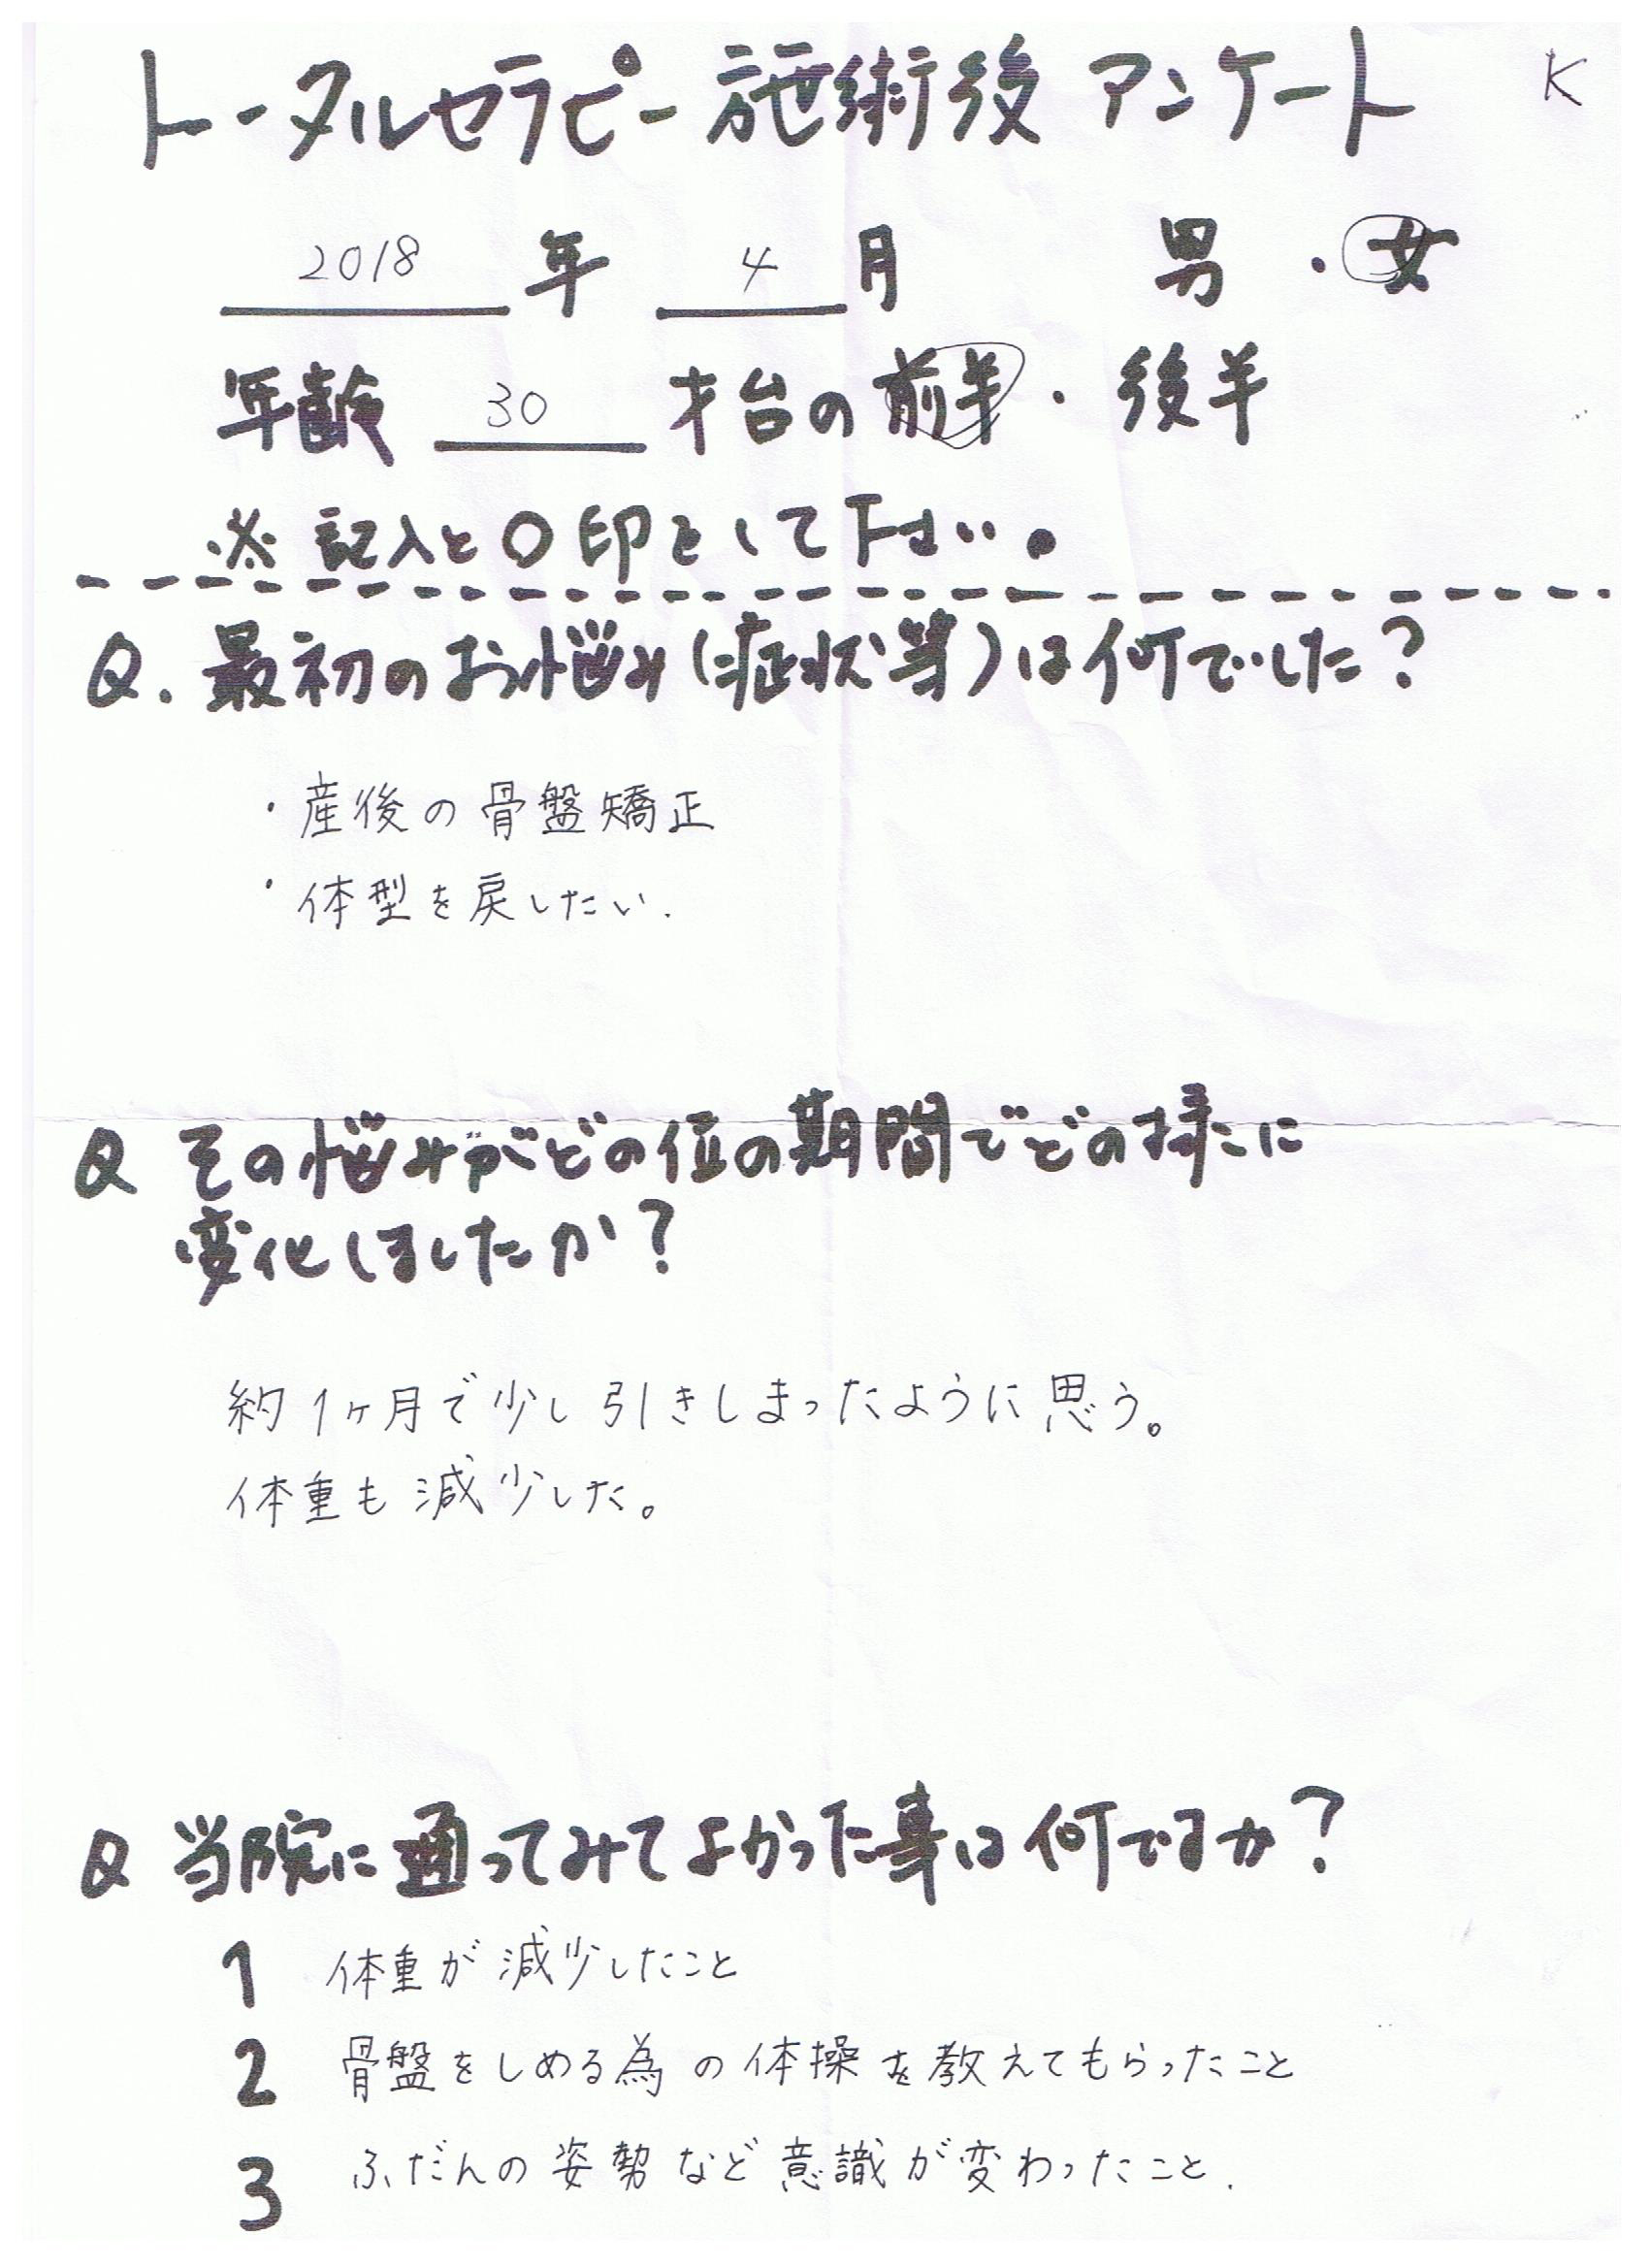 トータルセラピー施術後 アンケート K
2018 年 4 月 男 ・ 女
年齢 30 才台の 前半 ・ 後半
※ 記入と〇印をして下さい。
Q. 最初のお悩み(症状等)は何でした?
・産後の骨盤矯正
・体型を戻したい.
Q その悩みがどの位の期間でどの様に
変化しましたか?
約1ヶ月で少し引きしまったように思う。
体重も減少した。
Q 当院に通ってみてよかった事は何ですか?
1 体重が減少したこと
2 骨盤をしめる為の体操を教えてもらったこと
3 ふだんの姿勢など意識が変わったこと.